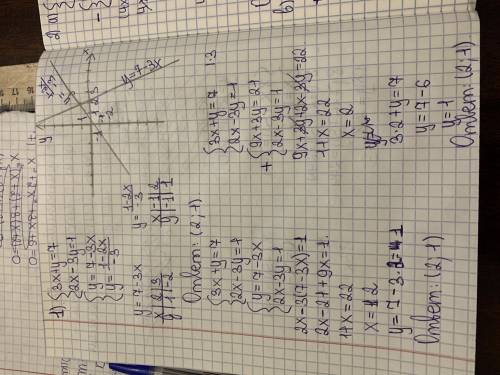 1) { 3x+y=7
{ 2x-3y=1
{ y=7-3x
{ y=1-2x/-3
y=7-3x
x 2 3
y 1 -2
y=1-2x/-3
x -1 2
y -1 1
y=7-3x
Ответ: (2;1)
{ 3x+y=7
{ 2x-3y=1
{ y=7-3x
{ 2x-3y=1
2x-3(7-3x)=1
2x-21+9x=1
11x=22
x=2
y=7-3·2=1
Ответ: (2;1)
{ 3x+y=7 |·3
{ 2x-3y=1
+ { 9x+3y=21
{ 2x-3y=1
9x+3y+2x-3y=22
11x=22
x=2
3·2+y=7
y=7-6
y=1
Ответ: (2;1)
2 а) {